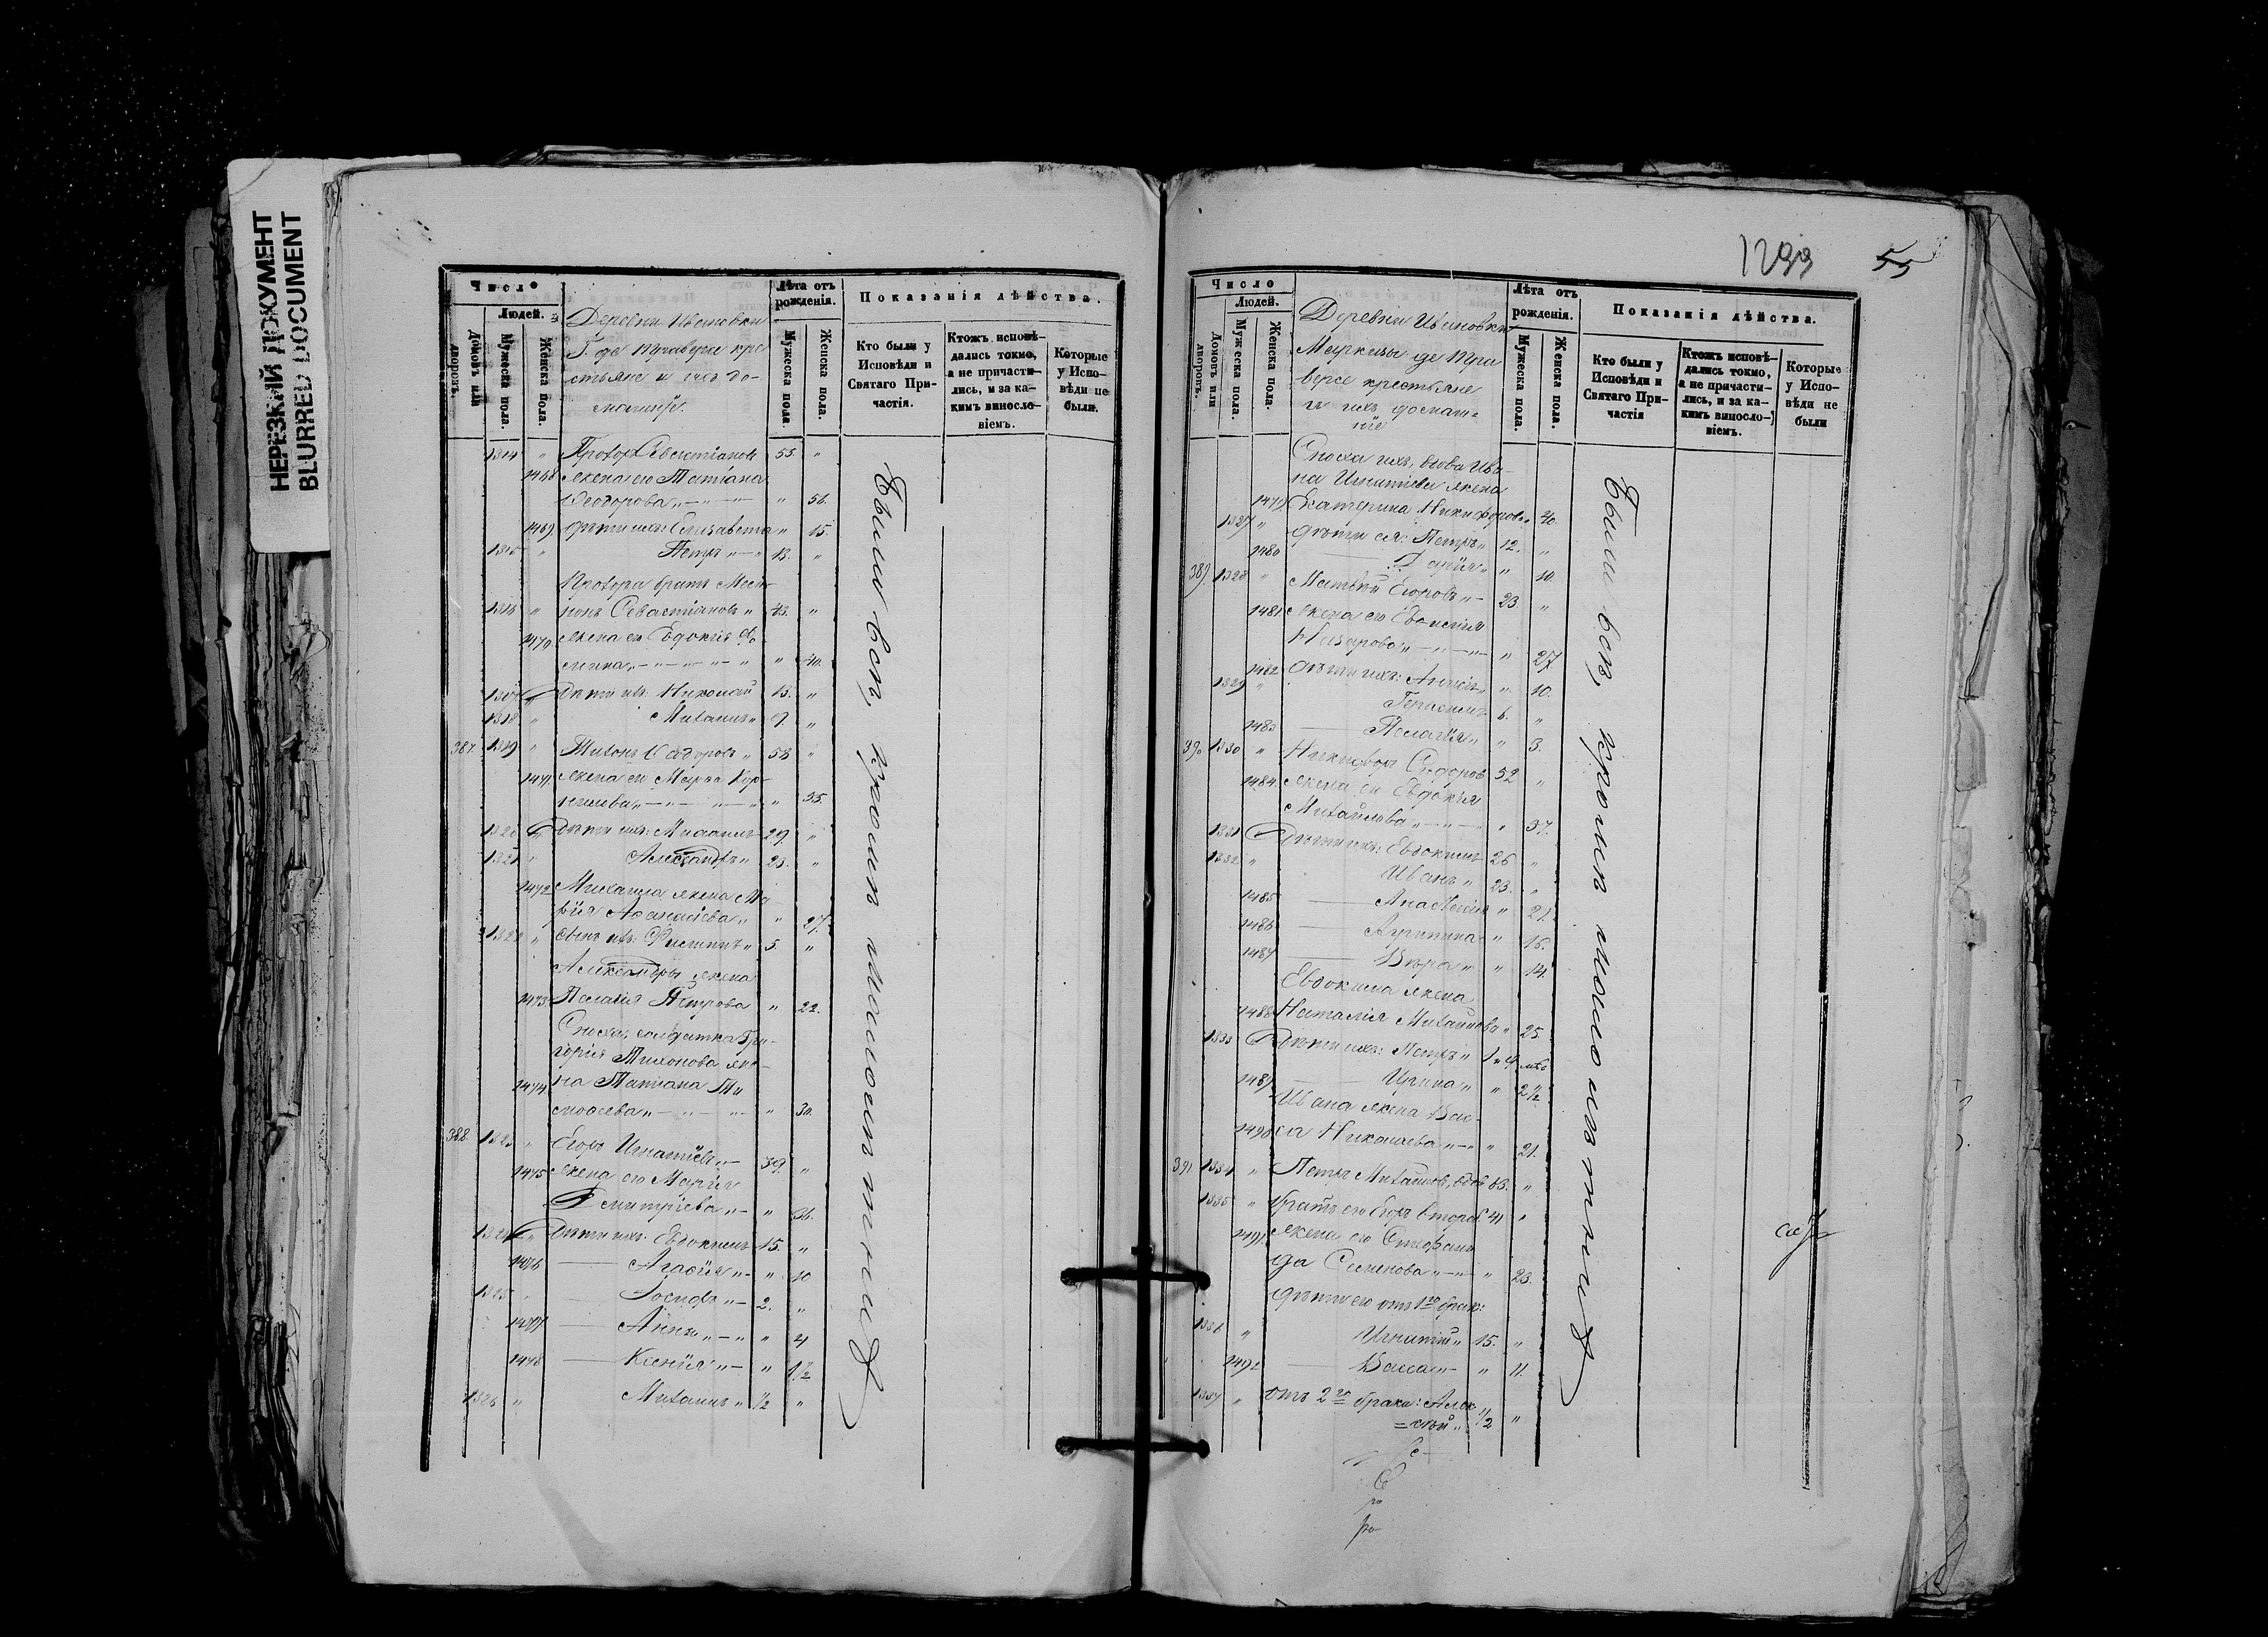 НЕРЕЗКИЙ ДОКУМЕНТ
BLURRED DOCUMENT
Число
Людей.
Домовъ или дворовъ.
Мужеска пола.
Женска пола.
Деревни Ивановки
Г. де Траверсе кре
стьяне и ихъ до-
машніе.
Лѣта отъ рожденія.
Мужеска пола.
Женска пола.
Показанія дѣйства.
Кто были у Исповѣди и Святаго При-частія.
Ктожъ исповѣ-дались токмо, а не причасти-лись, и за ка-кимъ винословіемъ.
Которые у Испо-вѣди не были.
1314 " Прохоръ Севастіановъ 55. "
1468 жена его Татіана
Ѳеодорова " " 56.
1469 дѣти ихъ: Елисавета " 15.
1315 " Петръ " 13. "
Прохора братъ
1316 " Севастіановъ " 43. "
1470 жена его Евдокія Ѳо
мина " " 40.
1317 " Дѣти ихъ: Николай 13. "
1318 " Михаилъ " 9 "
387. 1319 " Тихонъ Сидоровъ " 58 "
1471 жена его Марѳа
" 55.
1320 " Дѣти ихъ: Михаилъ 29. "
1321 " Александръ " 23. "
1472 Михаила жена Ма
рія Аѳанасіева " " 27.
1322 " сынъ ихъ: Филиппъ " 5 "
Александра жена
1473 Пелагія Петрова " 22.
Сноха, солдатка Гри-
горія Тихонова же-
1474 на Татіана Ти
моѳеева " " 30.
388. 1323 " Егоръ Игнатіевъ " 39. "
1475 жена его Марія
Дмитріева " " 36.
1324 " Дѣти ихъ: Евдокимъ 15. "
1476 Агаѳія " " 10
1325 Іосифъ " 2. "
1477 Анна " " 4
1478 Ксенія " " 1 1/2
1326 " Михаилъ " 1/2 "
Были вси, кромѣ малолѣтнихъ
1299
55
Число
Людей.
Домовъ или дворовъ.
Мужеска пола.
Женска пола.
Деревни Ивановки
Маркизы де Тра
версе крестьяне
и ихъ домаш=
ніе
Лѣта отъ рожденія.
Мужеска пола.
Женска пола.
Показанія дѣйства.
Кто были у Исповѣди и Святаго При-частія
Ктожъ исповѣ-дались токмо, а не причасти-лись, и за ка-кимъ винословіемъ.
Которые у Испо-вѣди не были
Сноха ихъ, вдова Ива-
на Игнатіева жена
1479 Екатерина Никифорова 40.
1327 " дѣти ея: Петръ " 12. "
1480 Дарія " " 10.
389 1328 " Матвѣй Егоровъ " 23. "
1481 жена его
Назарова " " 27
1482 дѣти ихъ: " 10.
1329 " Герасимъ 6. "
1483 Пелагія " " 3.
390 1330 " Никифоръ Сидоровъ 52 "
1484 жена его Евдокія
Михайлова " " 37.
1331 Дѣти ихъ: Евдокимъ 26 "
1332 " Иванъ " 23. "
1485 Анастасія " 21.
1486 Агрипина " 16.
1487 Вѣра " " 14.
Евдокима жена
1488 Наталія Михайлова " 25.
1333 Дѣти ихъ: Петръ "
1489 Ирина " " 2 1/2
Ивана жена Вас-
1490 са Николаева " " 21.
391 1334 " Петръ Михайловъ, вдов 63. "
1335 " братъ его Егоръ второб. 41 "
1491 жена его Стефани
да Семенова " " 23.
дѣти его отъ 1го брака:
1336 " Игнатій " 15. "
1492 Васса " " 11.
1337 " отъ 2го брака: Алек
=сѣй " 1/2 "
Были вси, кромѣ малолѣтнихъ